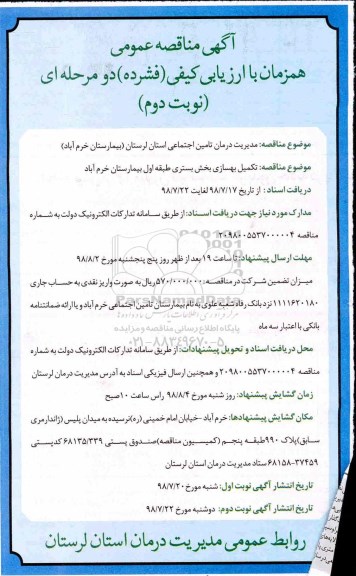 آگهی مناقصه عمومی
همزمان با ارزیابی کیفی (فشرده) دو مرحله ای
(نوبت دوم)
موضوع مناقصه: مدیریت درمان تامین اجتماعی استان لرستان (بیمارستان خرم آباد)
موضوع مناقصه: تکمیل بهسازی بخش بستری طبقه اول بیمارستان خرم آباد
دریافت اسناد : از تاریخ ۹۸/۷/۱۷ لغایت ۹۸/۷/۲۲
مدارک مورد نیاز جهت دریافت اسناد: از طریق سامانه تدارکات الکترونیک دولت به شماره
مناقصه ۲۰۹۸۰۰۵۵۳۷۰۰۰۰۰۴
مهلت ارسال پیشنهاد: تا ساعت ۱۹ بعد از ظهر روز پنج پنجشنبه مورخ ۹۸/۸/۲
میزان تضمین شرکت در مناقصه: ۵۷۰/۰۰۰/۰۰۰ ریال به صورت واریز نقدی به حساب جاری
۱۱۱۱۶۲۰۱۸۰ نزد بانک رفاه شعبه علوی به نام بیمارستان تامین اجتماعی خرم آباد و یا ارائه ضمانتنامه
بانکی با اعتبار سه ماه
پایگاه اطلاع رسانی مناقصه و مزایده
۰۲۱-۸۸۳۴۹۶۷۰-۵
محل دریافت اسناد و تحویل پیشنهادات: از طریق سامانه تدارکات الکترونیک دولت به شماره
مناقصه ۲۰۹۸۰۰۵۵۳۷۰۰۰۰۰۴ و همچنین ارسال فیزیکی اسناد به آدرس مدیریت درمان لرستان
زمان گشایش پیشنهاد: روز شنبه مورخ ۹۸/۸/۴ راس ساعت ۱۰ صبح
مکان گشایش پیشنهادها: خرم آباد -خیابان امام خمینی (ره) نرسیده به میدان پلیس (ژاندارمری
سابق) پلاک ۹۹۰ طبقه پنجم (کمیسیون مناقصه) صندوق پستی ۶۸۱۳۵/۳۳۹ کدپستی
۶۸۱۵۸-۳۷۴۵۹ ستاد مدیریت درمان استان لرستان
تاریخ انتشار آگهی نوبت اول: شنبه مورخ ۹۸/۷/۲۰
تاریخ انتشار آگهی نوبت دوم: دوشنبه مورخ ۹۸/۷/۲۲
روابط عمومی مدیریت درمان استان لرستان